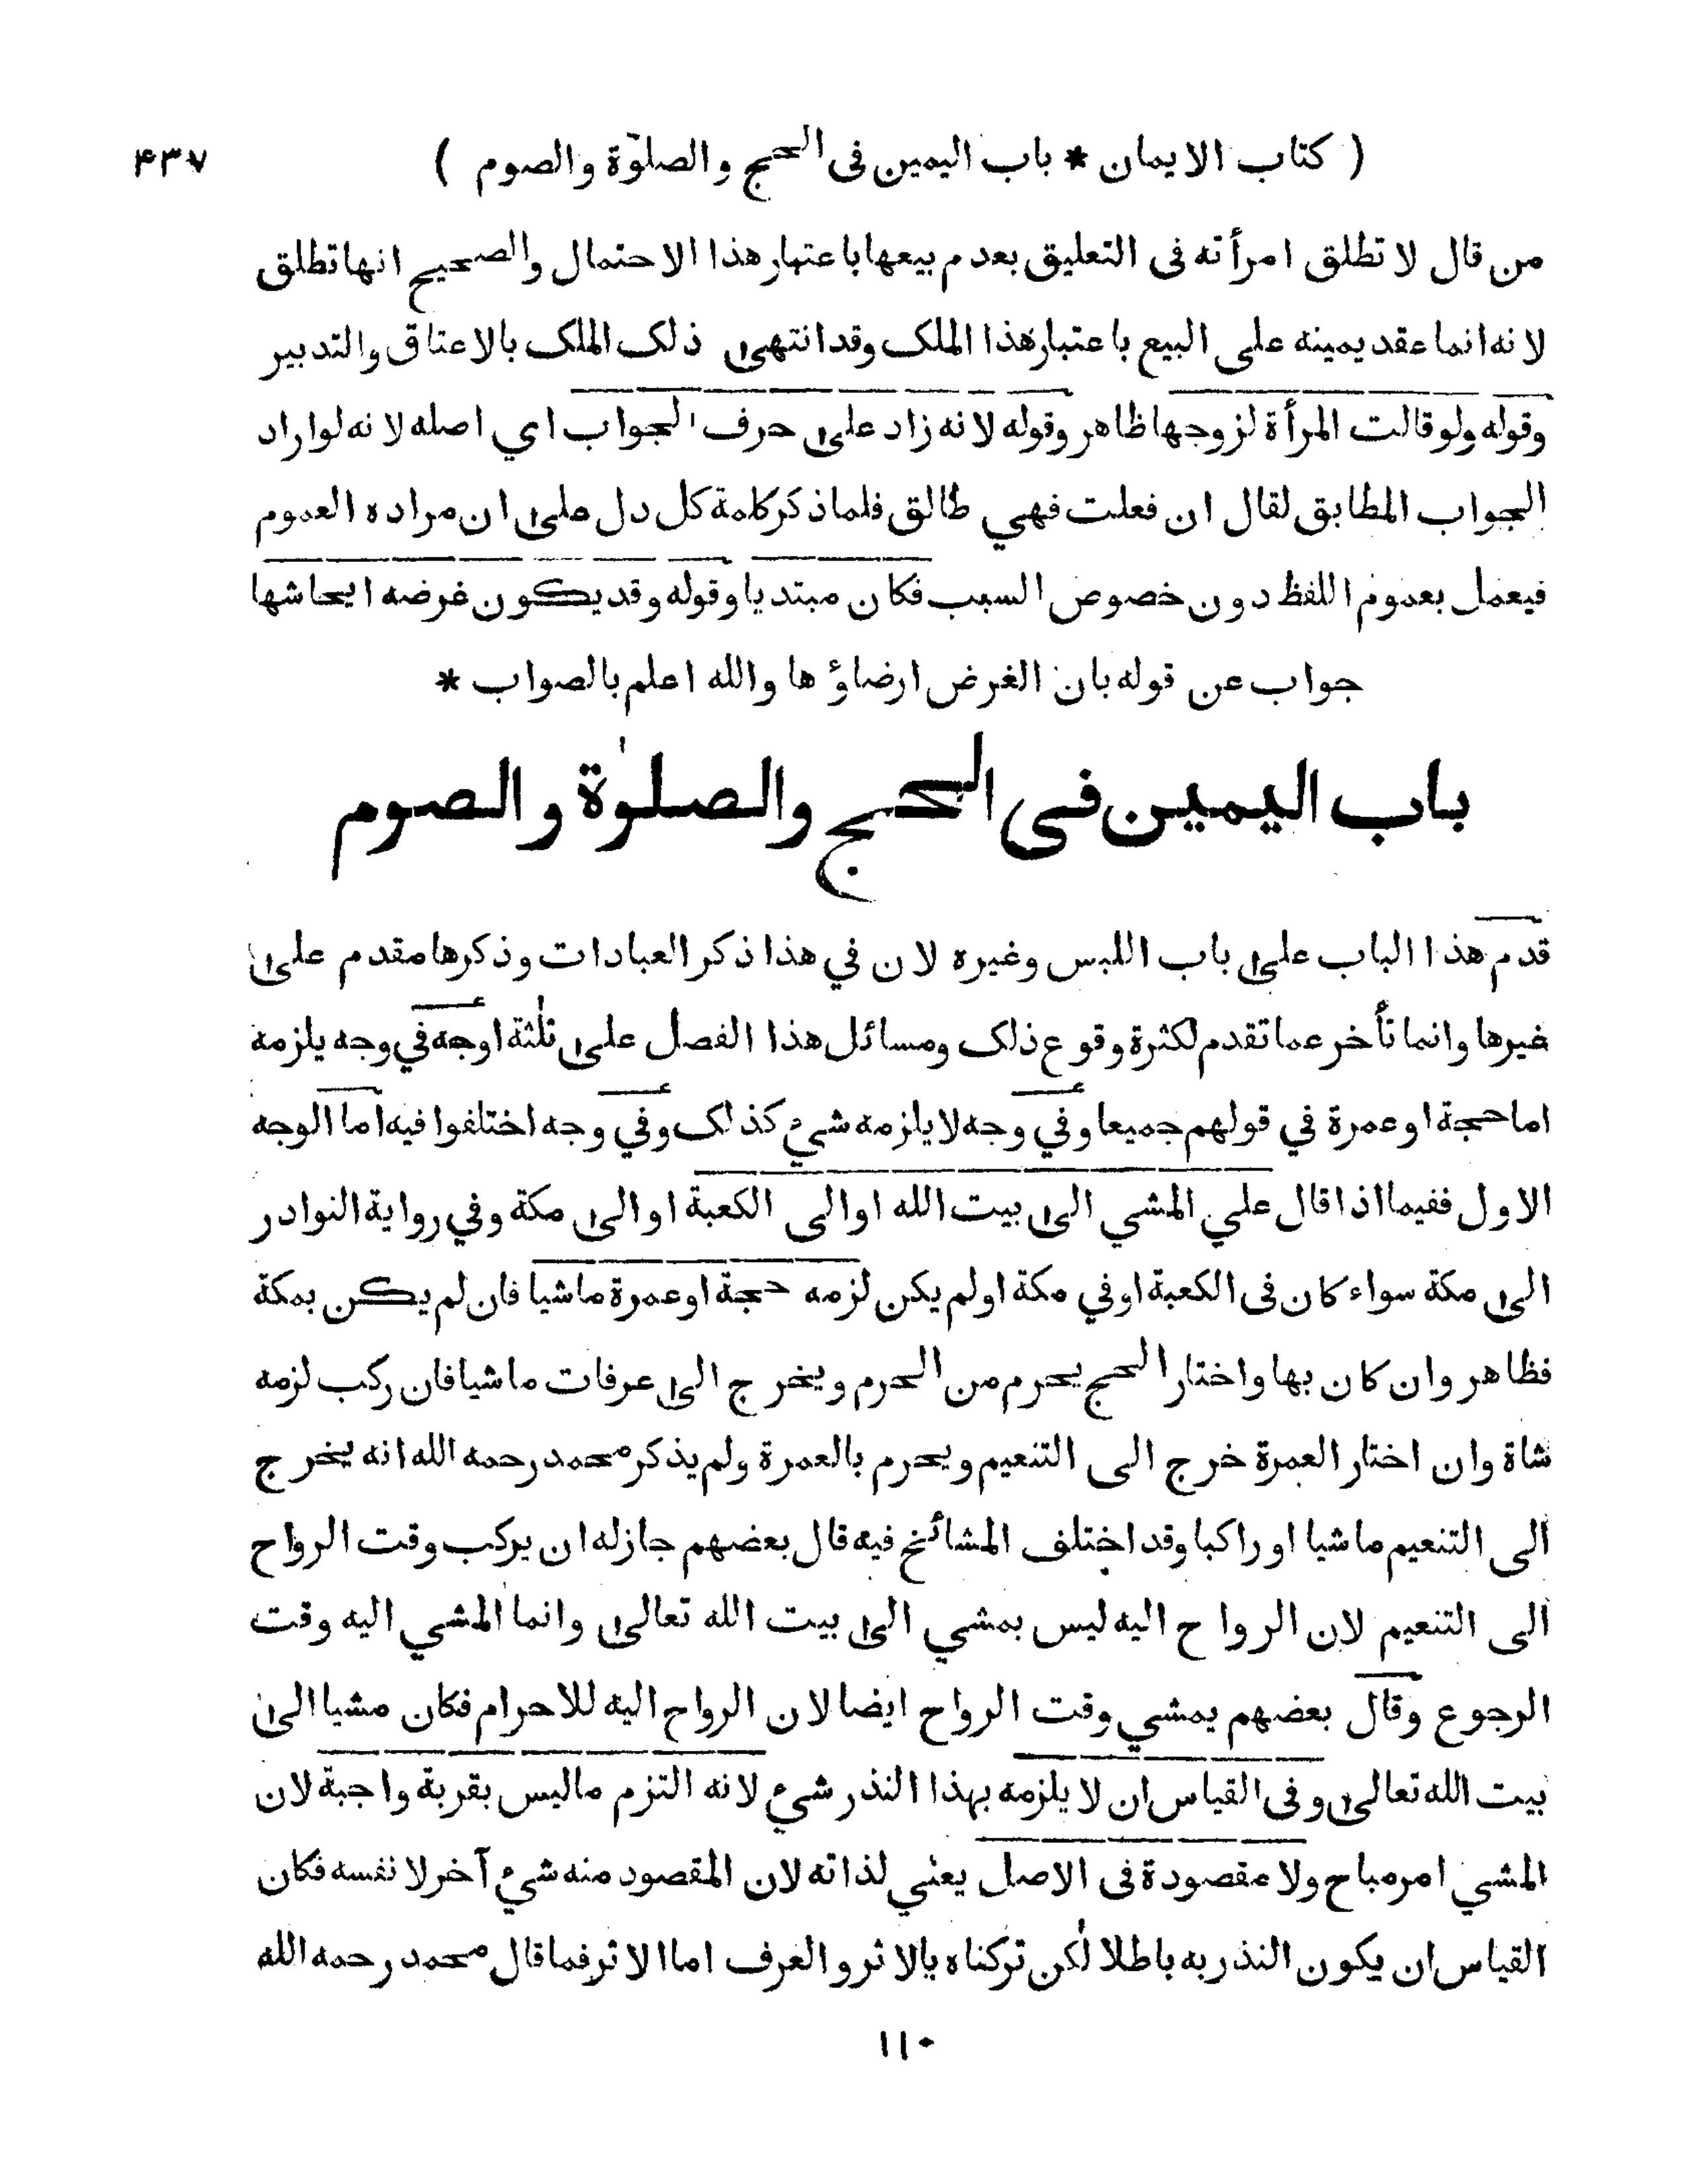 ( كتاب الايمان * باب اليمين فى الحج والصلوة والصوم ) ۴۳۷
من قال لا تطلق امرأته فى التعليق بعدم بيعها باعتبار هذا الاحتمال والصحيح انها تطلق
لانه انما عقد يمينه على البيع باعتبار هذا الملك وقد انتهى ذلك الملك بالاعتاق والتدبير
وقوله ولو قالت المرأة لزوجها ظاهر وقوله لانه زاد على حرف الجواب اي اصله لانه لو اراد
الجواب المطابق لقال ان فعلت فهي طالق فلما ذكر كلمة كل دل على ان مراده العموم
فيعمل بعموم اللفظ دون خصوص السبب فكان مبتديا وقوله وقد يكون غرضه ايحاشها
جواب عن قوله بان الغرض ارضاؤها والله اعلم بالصواب *
باب اليمين فى الحج والصلوٰة والصوم
قدم هذا الباب على باب اللبس وغيره لان في هذا ذكر العبادات وذكرها مقدم على
غيرها وانما تأخر عما تقدم لكثرة وقوع ذلك ومسائل هذا الفصل على ثلٰثة اوجه في وجه يلزمه
اما حجة او عمرة في قولهم جميعا وفي وجه لا يلزمه شيء كذلك وفي وجه اختلفوا فيه اما الوجه
الاول ففيما اذا قال علي المشي الى بيت الله او الى الكعبة او الى مكة وفي رواية النوادر
الى مكة سواء كان فى الكعبة او في مكة او لم يكن لزمه حجة او عمرة ماشيا فان لم يكن بمكة
فظاهر وان كان بها واختار الحج يحرم من الحرم ويخرج الى عرفات ماشيا فان ركب لزمه
شاة وان اختار العمرة خرج الى التنعيم ويحرم بالعمرة ولم يذكر محمد رحمه الله انه يخرج
الى التنعيم ماشيا او راكبا وقد اختلف المشائخ فيه قال بعضهم جاز له ان يركب وقت الرواح
الى التنعيم لان الرواح اليه ليس بمشي الى بيت الله تعالى وانما المشي اليه وقت
الرجوع وقال بعضهم يمشي وقت الرواح ايضا لان الرواح اليه للاحرام فكان مشيا الى
بيت الله تعالى وفى القياس ان لا يلزمه بهذا النذر شيء لانه التزم ما ليس بقربة واجبة لان
المشي امر مباح ولا مقصودة فى الاصل يعني لذاته لان المقصود منه شيء آخر لا نفسه فكان
القياس ان يكون النذر به باطلا لٰكن تركناه بالاثر والعرف اما الاثر فما قال محمد رحمه الله
١١٠